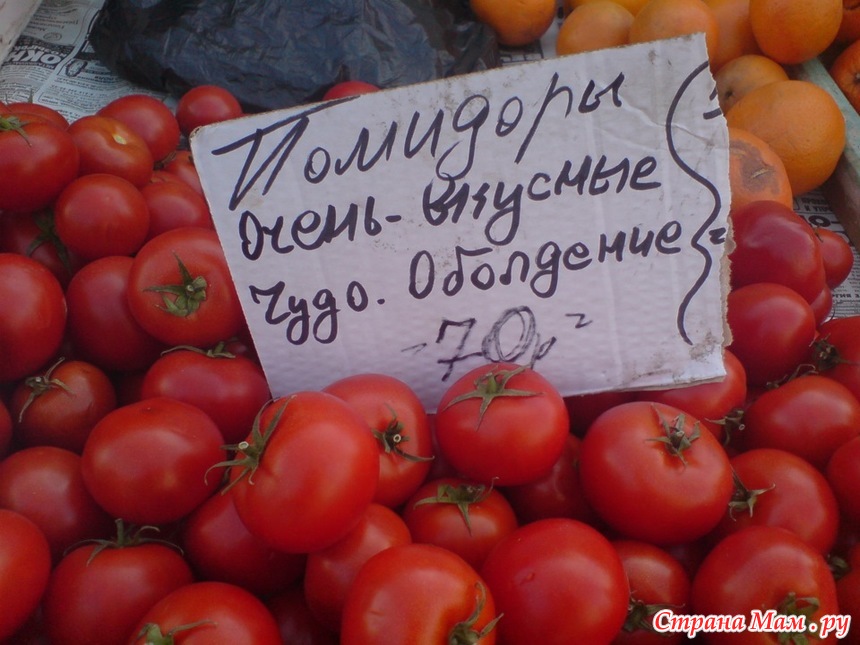 Помидоры
очень-вкусные
Чудо. Оболдение
-70р-
Страна Мам.ру